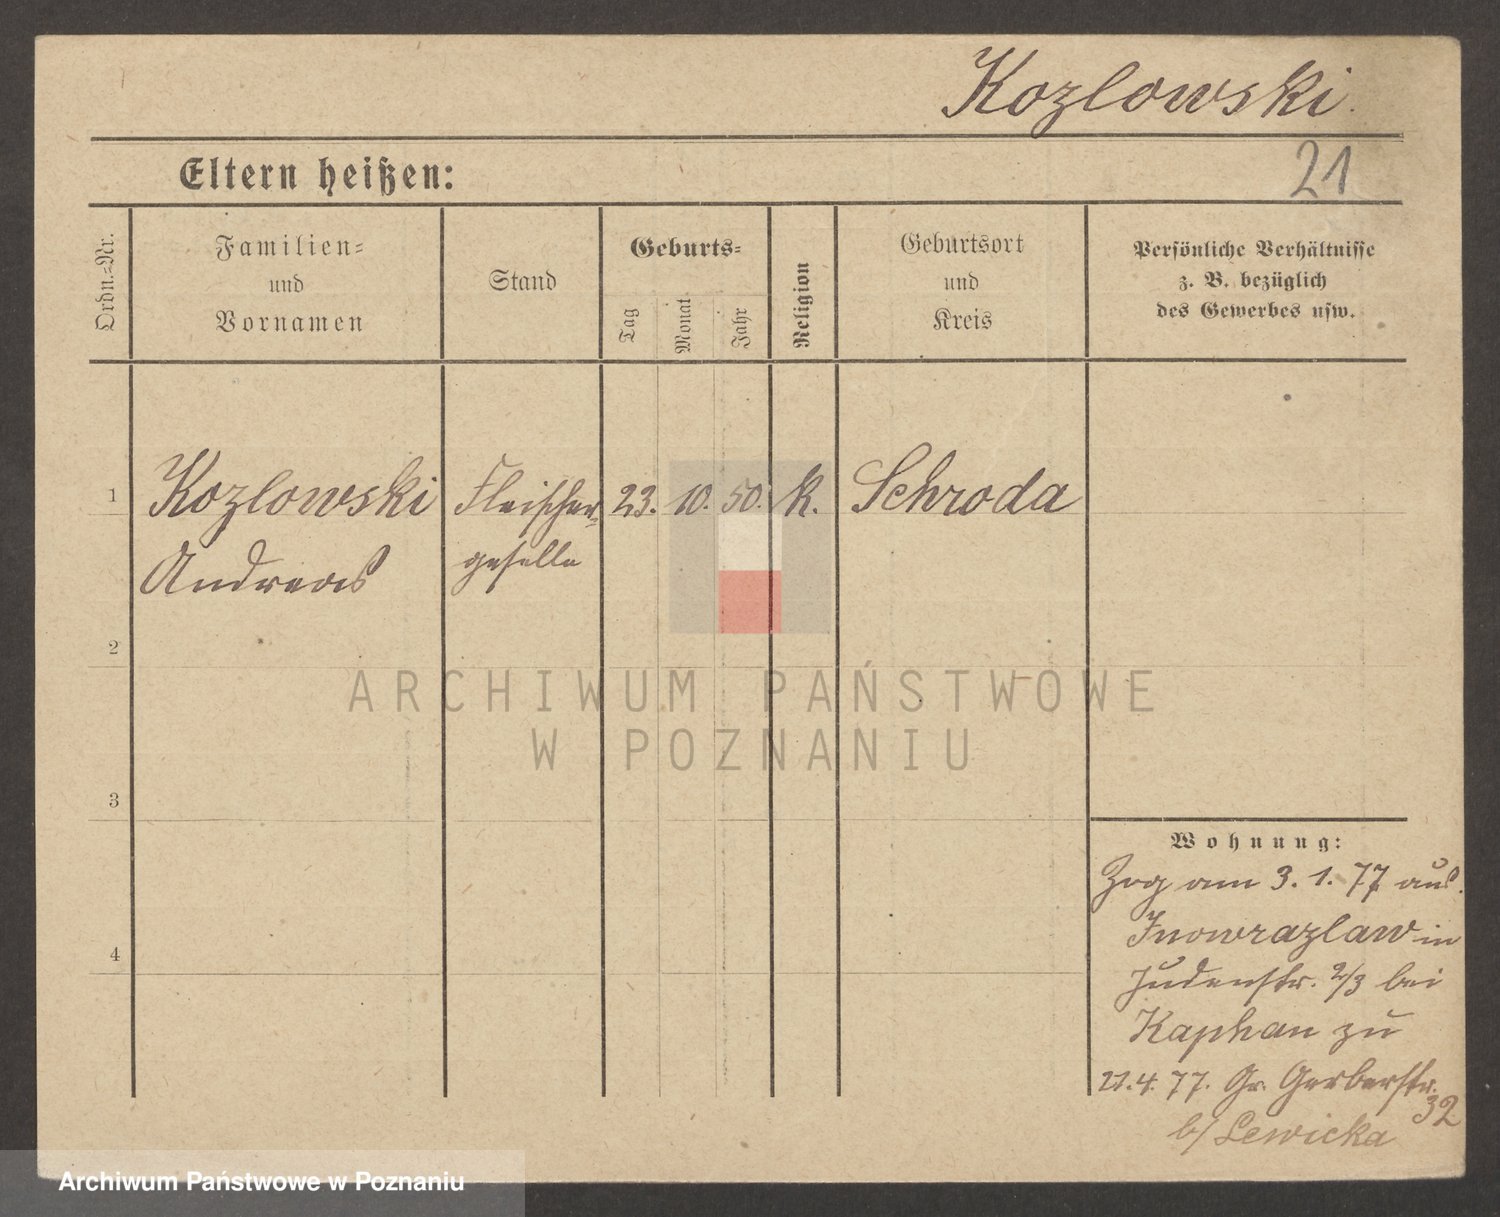 Kozlowski.
21
Eltern heißen:
Ordn.-Nr.
Familien-
und
Vornamen
Stand
Geburts-
Tag
Monat
Jahr
Religion
Geburtsort
und
Kreis
Persönliche Verhältnisse
z. B. bezüglich
des Gewerbes usw.
1 Kozlowski Fleischer- 23. 10. 50. k. Schroda
Andreas geselle
2
ARCHIWUM PAŃSTWOWE
W POZNANIU
3
Wohnung:
Zog am 3. 1. 77 aus
Inowrazlaw in
4
Judenstr. 2/3 bei
Kaphan zu
21. 4. 77. Gr. Gerberstr.
32
b/ Lewicka
Archiwum Państwowe w Poznaniu